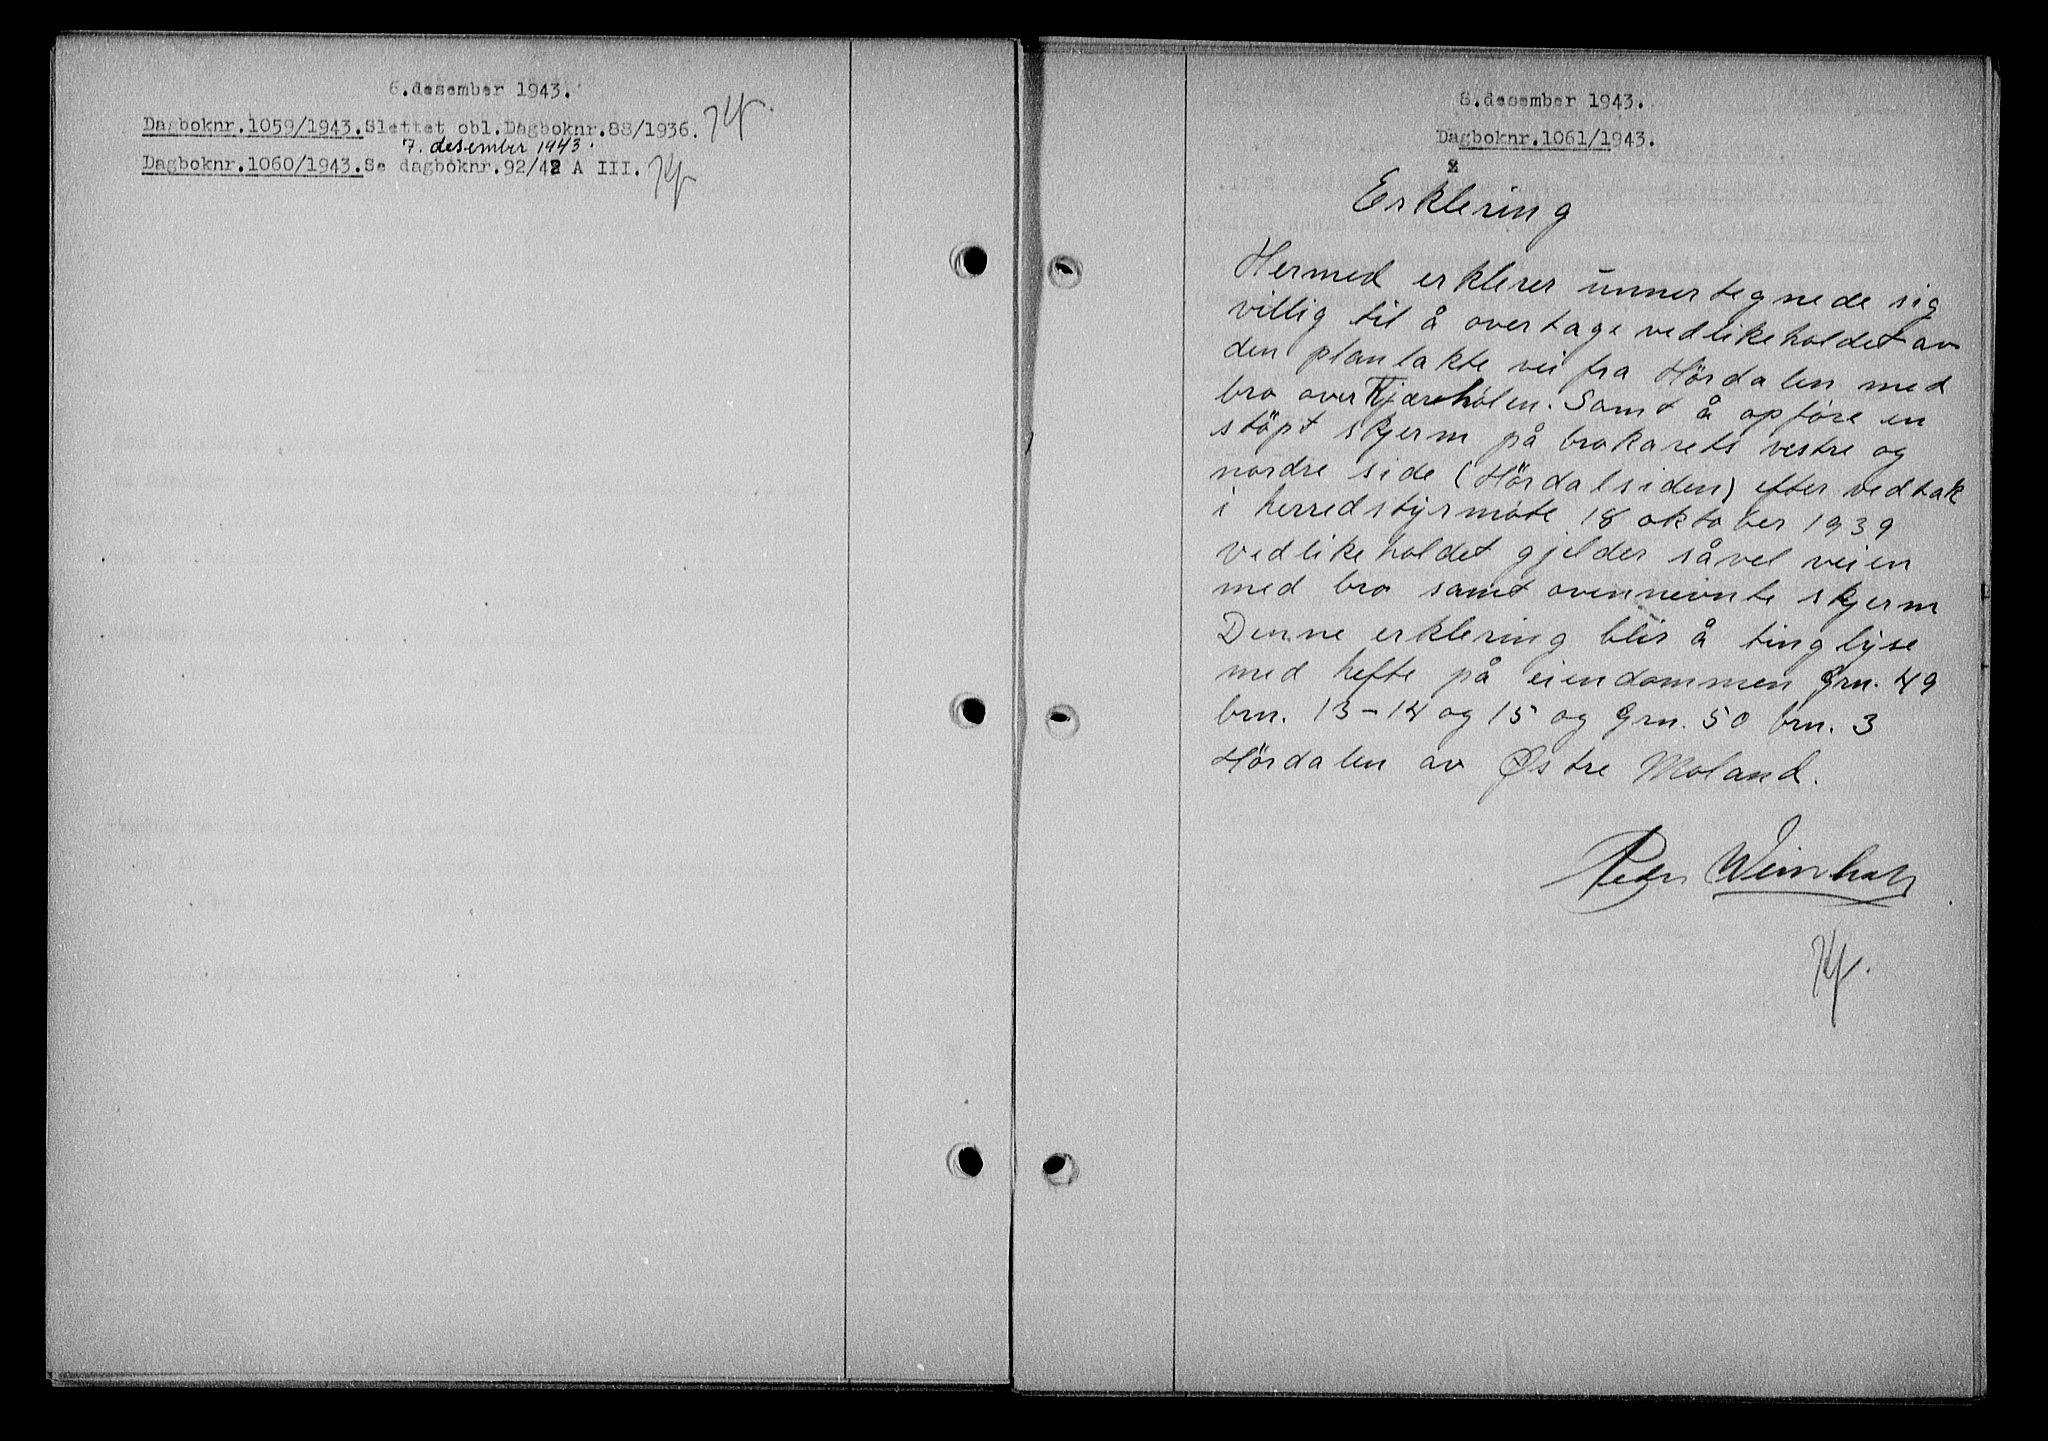 6.desember 1943.
Dagboknr.1059/1943.Slettet obl.Dagboknr.88/1936.
7. desember 1943.
Dagboknr.1060/1943.Se dagboknr.92/42 A III.
8.desember 1943.
Dagboknr.1061/1943.
Erklering
Hermed erklerer unnertegnede sig
villig til å overtage vedlikeholdet av
den planlakte vei fra Hördalen med
bro over Kjærehölen. Samt å opføre en
støpt skjerm på brokarets vestre og
nordre side (Hördalsiden) efter vedtak
i herredstyrmöte 18 oktober 1939
Vedlikeholdet gjelder såvel veien
med bro samt ovennevnte skjerm
Denne erklering blir å tinglyse
med hefte på eiendommen Grn. 49
brn. 13-14 og 15 og Grn. 50 brn. 3
Hördalen av Østre Moland.
Peder